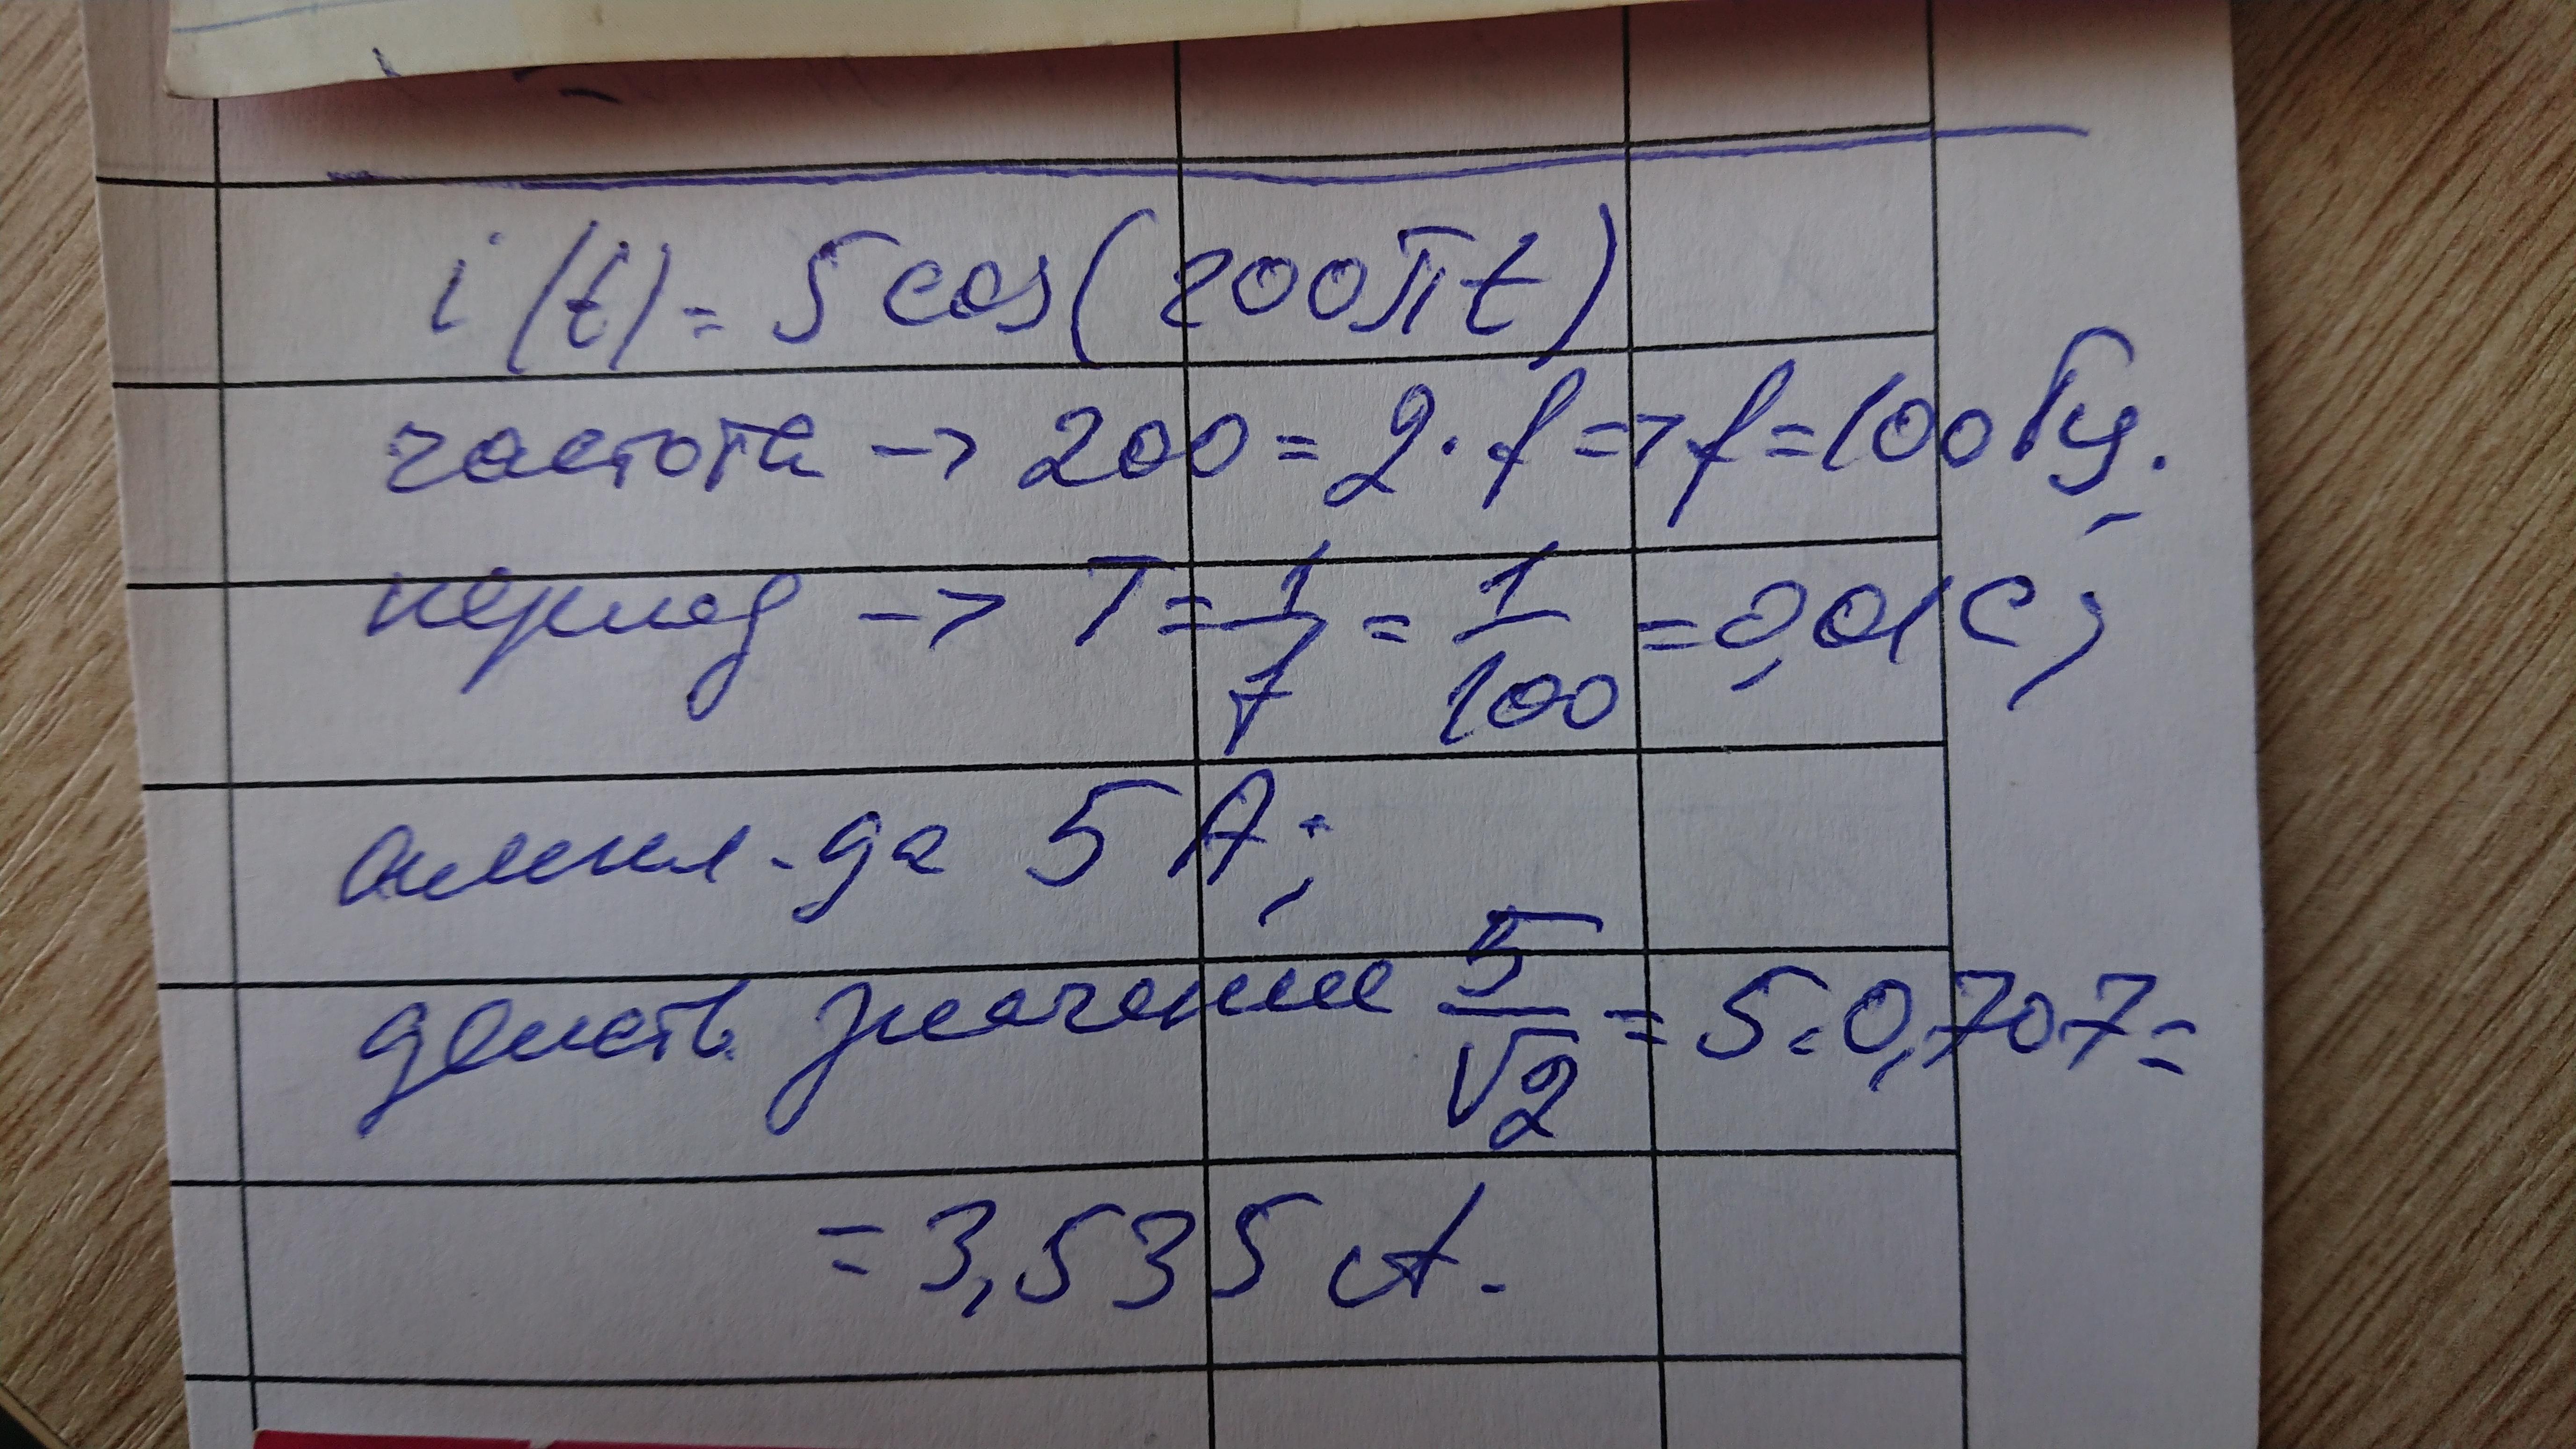 i(t) = 5 cos(200πt)
частота -> 200 = 2 · f => f = 100 Гц.
период -> T = 1/f = 1/100 = 0,01 с;
ампл-да 5 А;
действ. значение 5/√2 = 5 · 0,707 =
= 3,535 А.